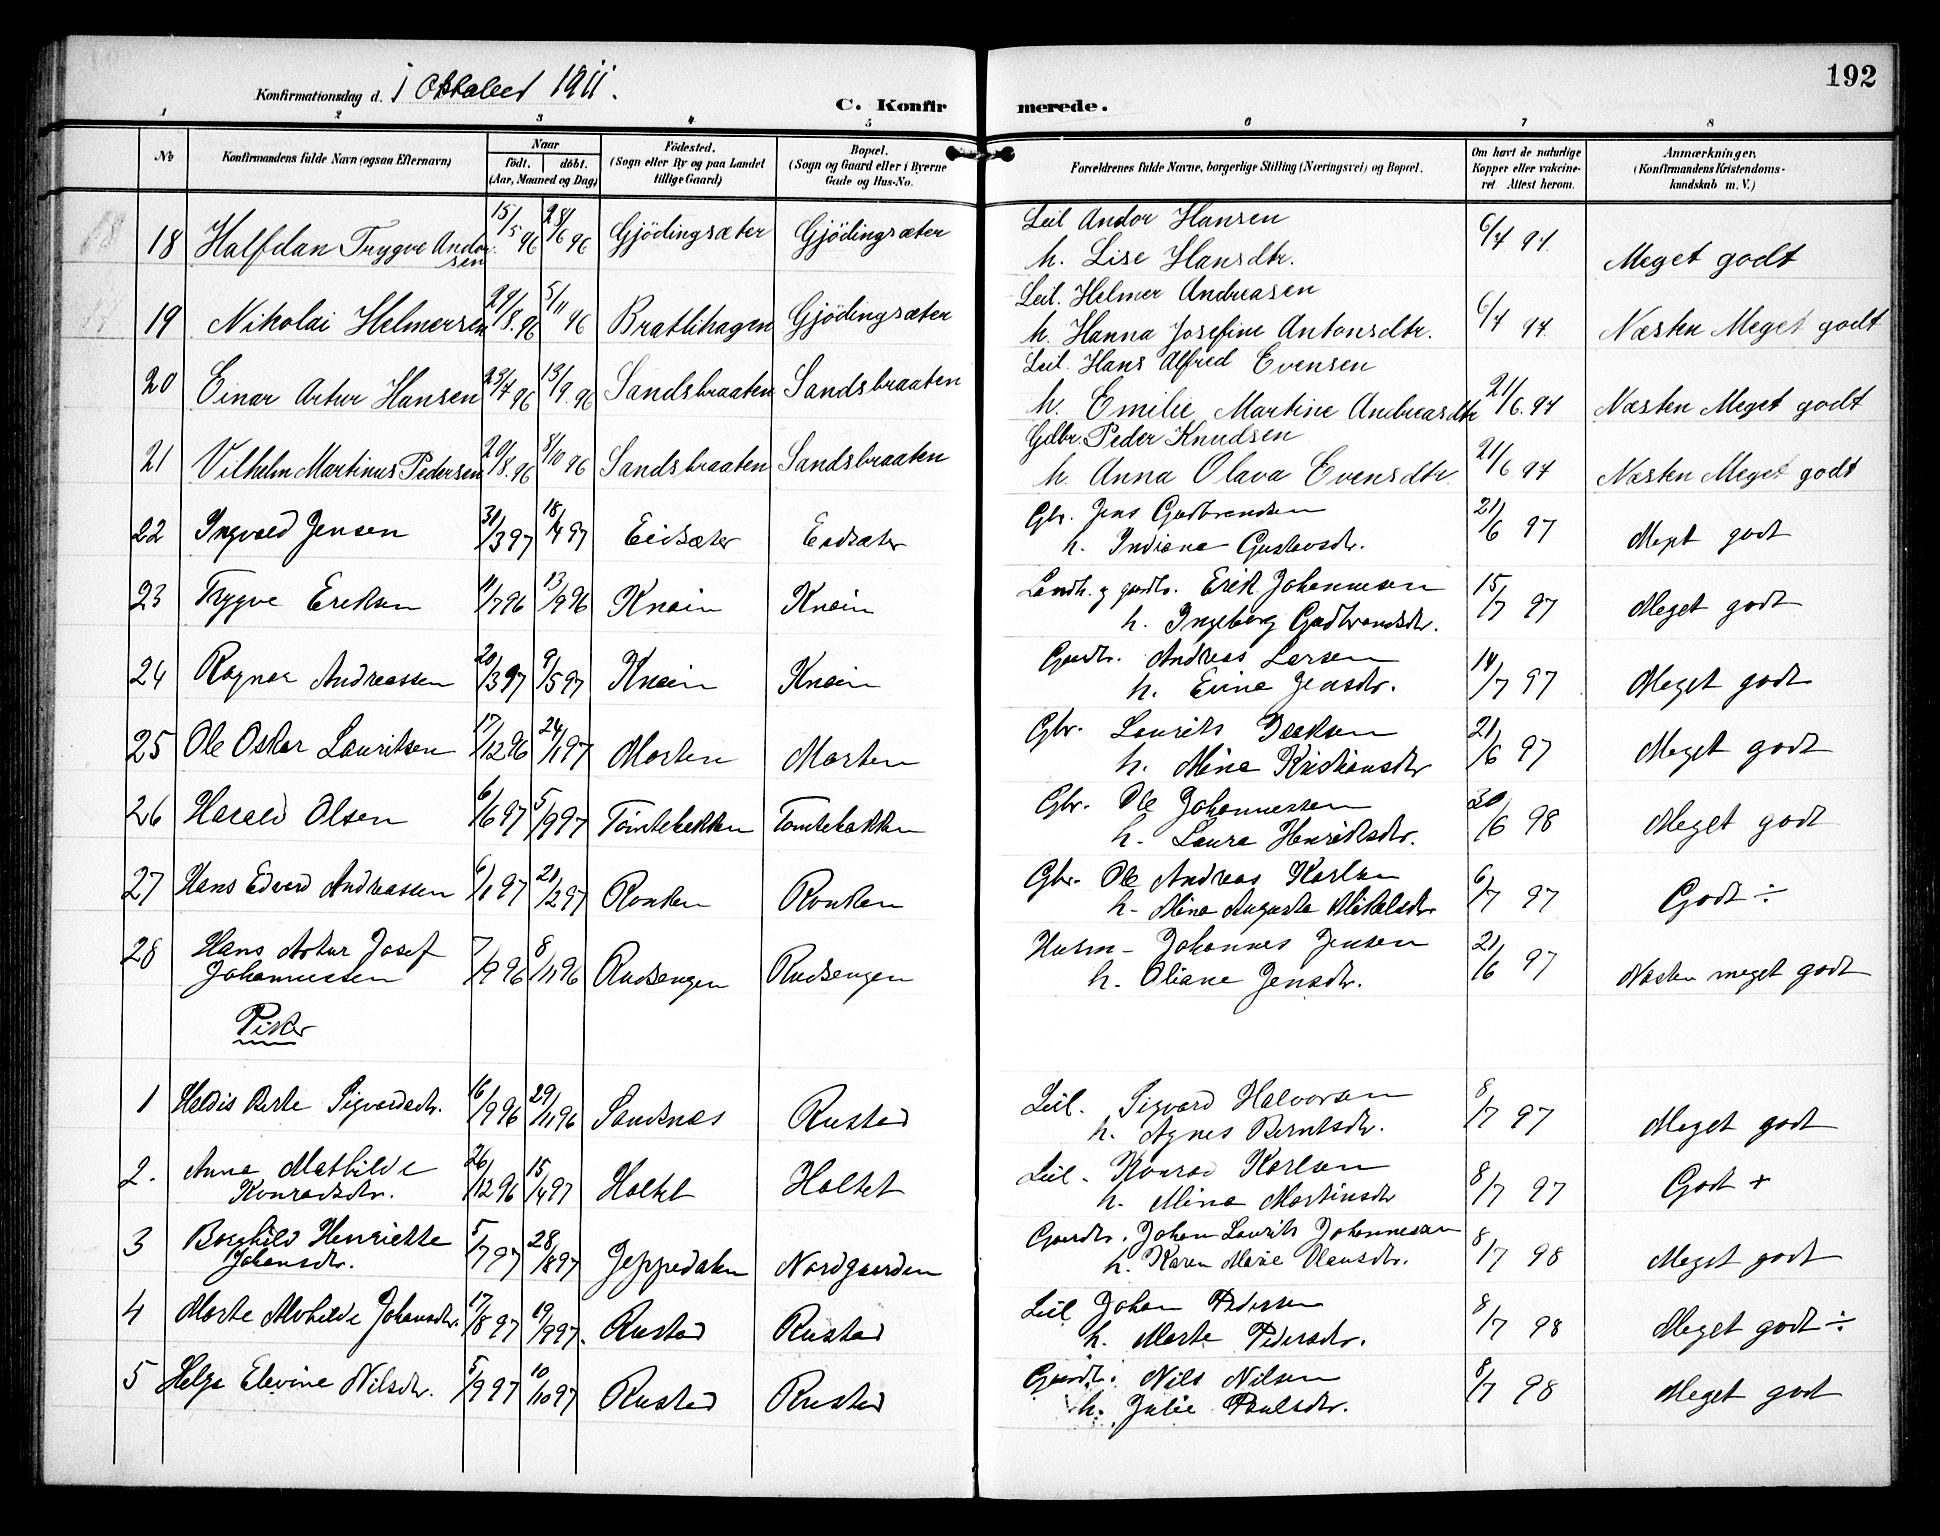 Konfirmationsdag d. i 1911.
C. Konfirmerede.
192
1 2 3 4 5 6 7 8
No
Konfirmandens fulde Navn (ogsaa Efternavn)
Naar
født. døbt.
(Aar, Maaned og Dag)
Födested.
(Sogn eller By og paa Landet
tillige Gaard)
Bopæl.
(Sogn og Gaard eller i Byerne
Gade og Hus-No.
Forældrenes fulde Navne, borgerlige Stilling (Næringsvei) og Bopæl.
Om havt de naturlige
Kopper eller vakcine-
ret Attest herom.
Anmærkninger,
(Konfirmandens Kristendoms-
kundskab m. V.)
18 Halfdan Trygve Andor-
sen 15/5 96 28/6 96 Gjödingsæter Gjödingsæter Leil Andor Hansen
h. Lise Hansdtr. 6/7 97. Meget godt
19 Nikolai Helmersen 29/8. 96 5/11 96 Brattihagen Gjödingsæter Leil. Helmer Andreasen
h. Hanna Josefine Antonsdtr. 6/7 97. Næsten Meget godt
20 Einar Artur Hansen 23/7 96 13/9. 96 Sandsbraaten Sandsbraaten Leil. Hans Alfred Evensen
h. Emilie Martine Andreasdtr 21/6. 97 Næsten Meget godt
21 Vilhelm Martinus Pedersen 20/8. 96 8/10 96 Sandsbraaten Sandsbraaten Gdbr. Peder Knudsen
h. Anna Olava Evensdtr 21/6 97 Næsten Meget godt
22 Ingvald Jensen 31/3 97 18/4 97 Eidsæter Eidsæter Gbr. Jens Gudbrandsen
h. Indiana Gustavsdr. 21/6 97 Meget godt
23 Trygve Eriksen 11/7 96 13/9 96 Knain Knain Landh. g gaardbr. Erik Johannesen
h. Ingeborg Gudbrandsdr. 15/7 97 Meget godt
24 Ragnar Andreassen 20/3 97 9/5 97 Knain Knain Gaardbr. Andreas Larsen
h. Evine Jensdr. 14/7 97 Meget godt
25 Ole Oskar Lauritsen 17/12 96 24/1 97 Morten Morten Gbr. Laurits Isaksen
h. Mina Kristiansdtr 21/6 97 Meget godt
26 Harald Olsen 6/6 97 5/9 97 Tömtebakken Tomtebakken Gbr. Ole Johannessen
h. Laura Henriksdtr. 30/6 98 Meget godt
27 Hans Edvard Andreassen 6/1 97 21/2 97 Rouken Rouken Gbr. Ole Andreas Karlsen
h. Mina Augusta Mikalsdr 6/7 97 Godt ÷
28 Hans Artur Josef
Johannessen 7/9 96 8/11 96 Rudsengen Rudsengen Husm - Johannes Jensen
h. Oliane Jensdtr. 21/6 97 Næsten meget godt
Piker
1 Heldis Berte Sigvardsdtr. 16/9 96 29/11 96 Sandsnæs Rustad Leil. Sigvard Halvorsen
h. Agnes Berntsdtr. 8/7 97 Meget godt
2. Anna Mathilde
Konradsdtr. 26/12 96 15/4 97 Holtet Holtet Leil. Konrad Karlsen
h. Mina Martinsdtr 8/7 97 Godt +
3 Borghild Henriette
Johansdtr. 5/7 97 28/8 97 Jeppedalen Nordgaarden Gaardbr. Johan Laurits Johannessen
h. Karen Marie Olausdtr. 8/7 98 Meget godt
4 Marte Mathilde Johansdtr. 17/8 97 19/9 97. Rustad Rustad Leil Johan Pedersen
h. Marte Pedersdtr. 8/7 98 Meget godt ÷
5 Helga Elevine Nilsdtr. 5/9 97 10/10 97 Rustad Rustad Gaardbr. Nils Nilsen
h. Julie Paulsdtr. 8/7 98 Meget godt